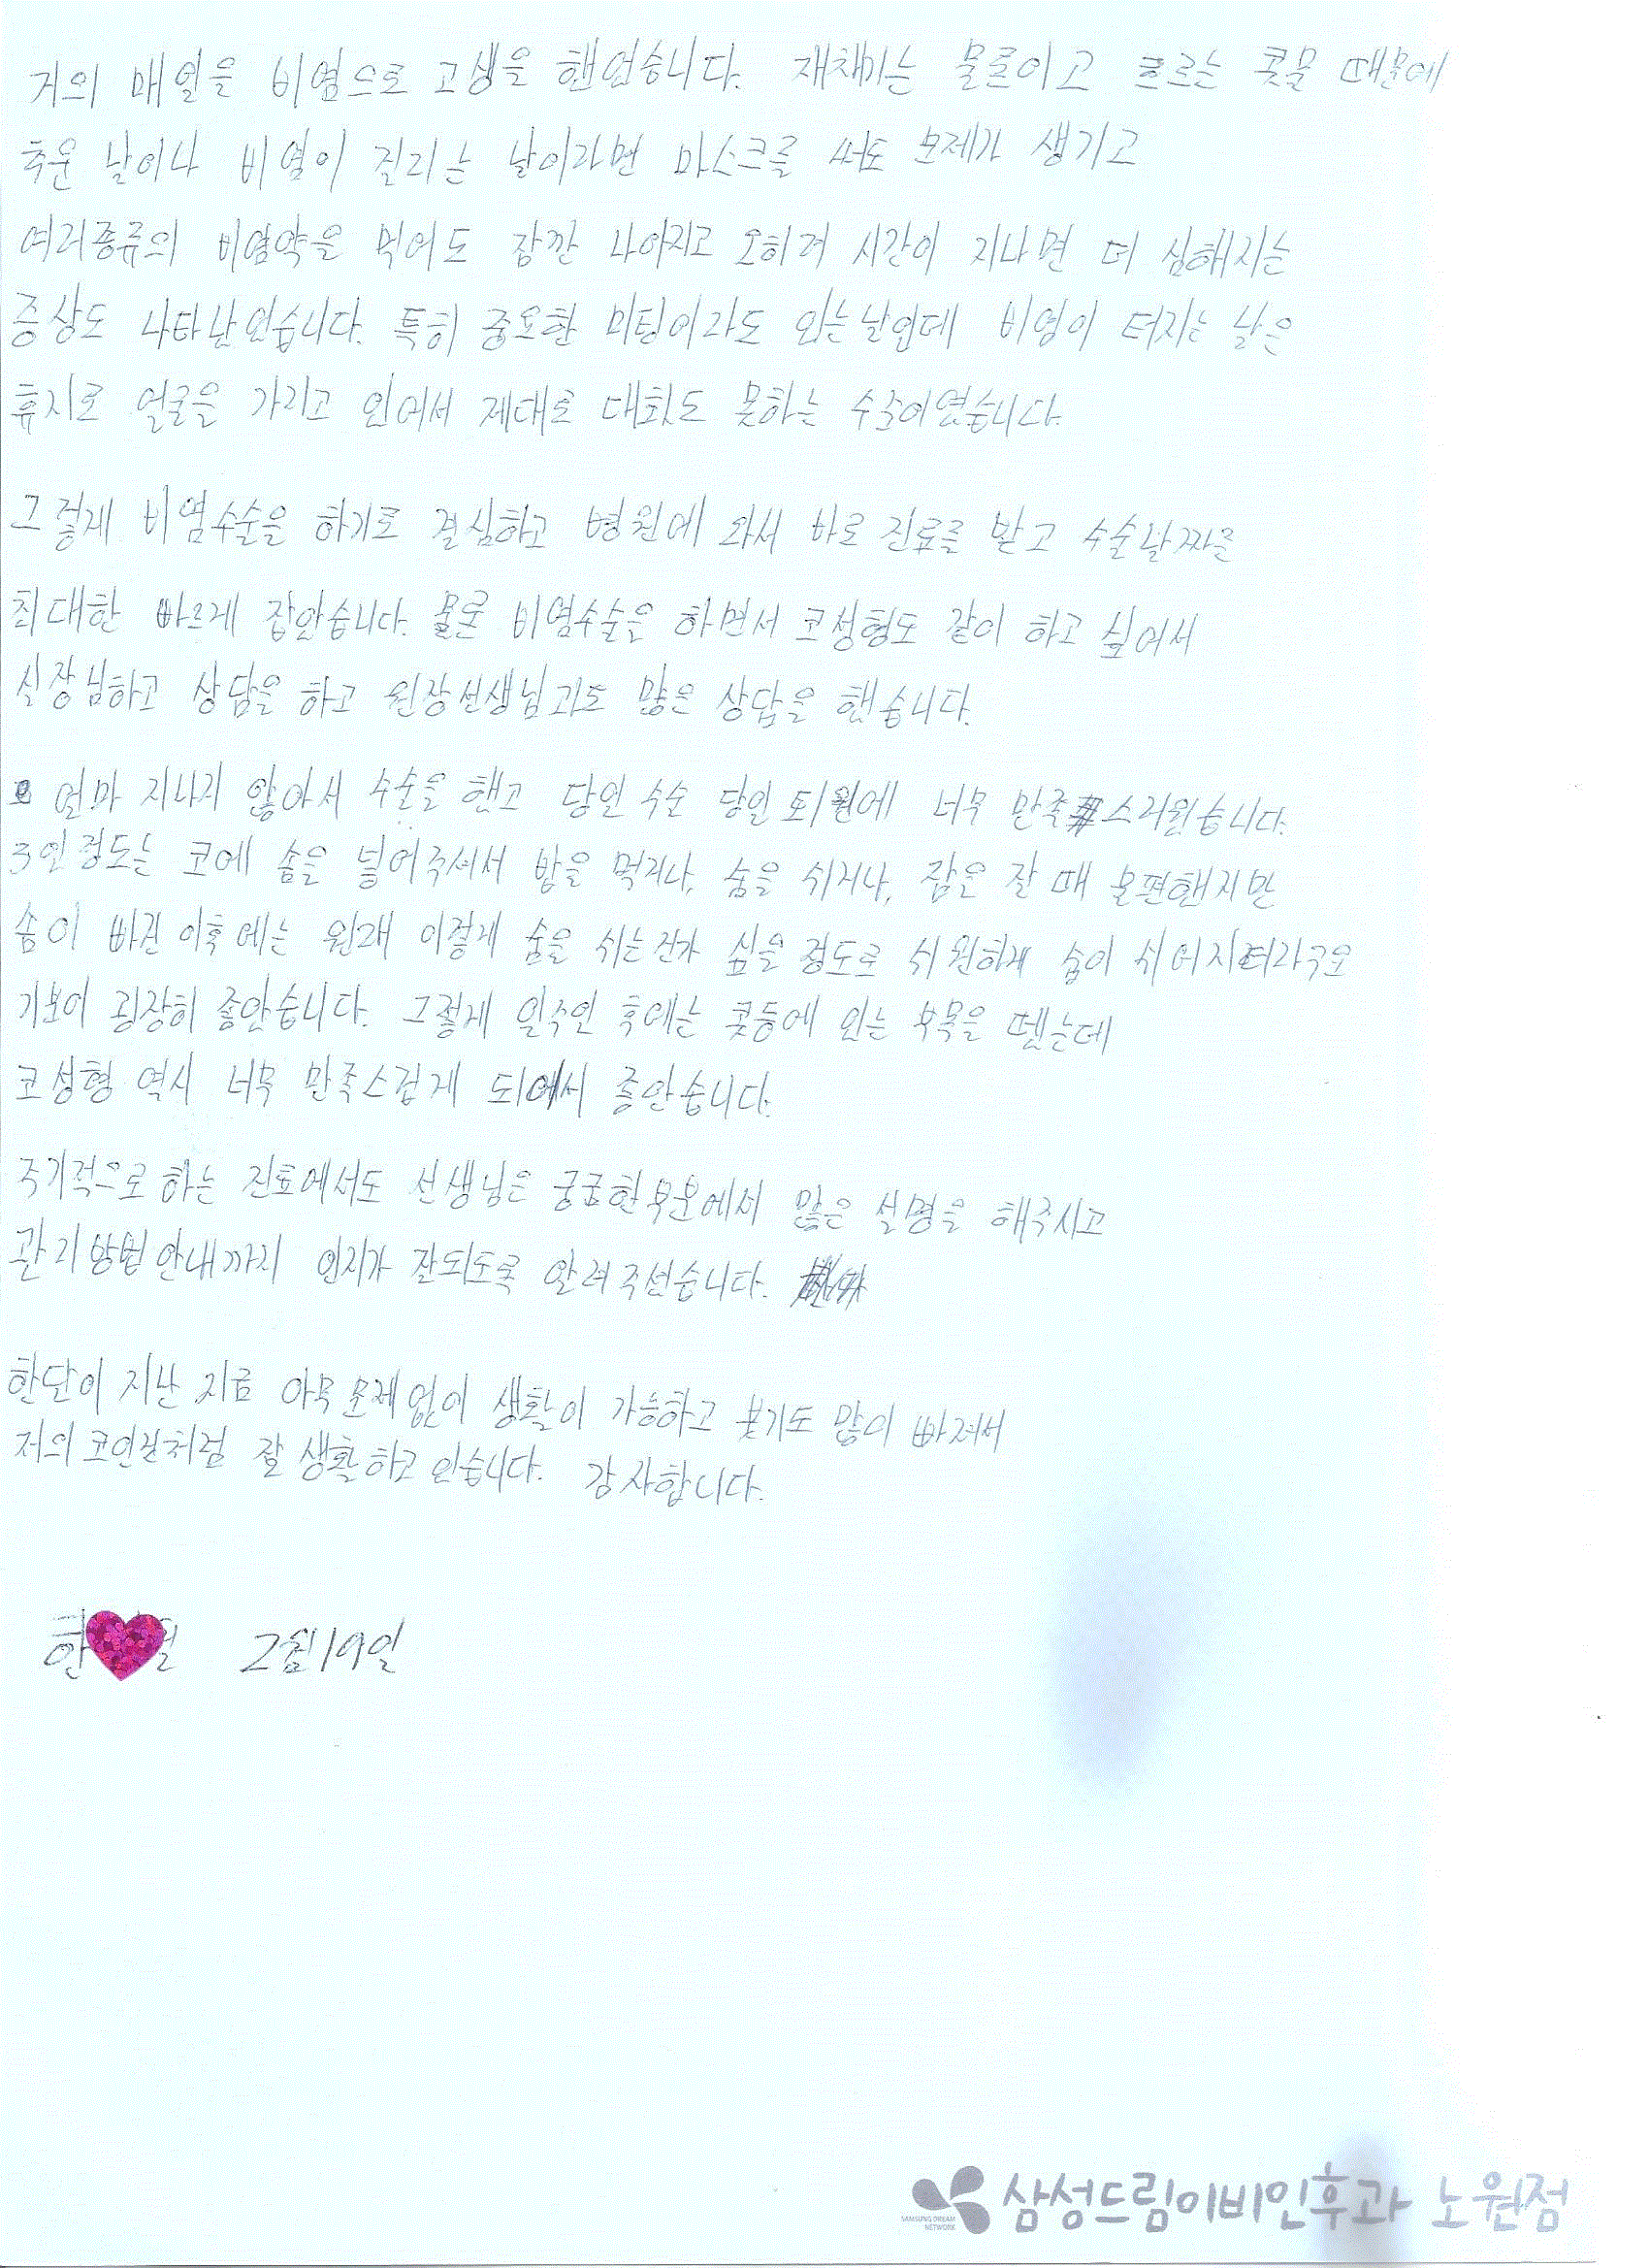 거의 매일을 비염으로 고생을 했었습니다. 재채기는 물론이고 흐르는 콧물 때문에
추운 날이나 비염이 질리는 날이라면 마스크를 써도 문제가 생기고
여러종류의 비염약을 먹어도 잠깐 나아지고 오히려 시간이 지나면 더 심해지는
증상도 나타났었습니다. 특히 중요한 미팅이라도 있는날인데 비염이 터지는 날은
휴지로 얼굴을 가리고 있어서 제대로 대화도 못하는 수준이였습니다.
그렇게 비염수술을 하기로 결심하고 병원에 와서 바로 진료를 받고 수술날짜를
최대한 빠르게 잡았습니다. 물론 비염수술을 하면서 코성형도 같이 하고 싶어서
실장님하고 상담을 하고 원장선생님과도 많은 상담을 했습니다.
얼마 지나지 않아서 수술을 했고 당일 수술 당일 퇴원에 너무 만족스러웠습니다.
3일정도는 코에 솜을 넣어주셔서 밥을 먹거나, 숨을 쉬거나, 잠을 잘 때 불편했지만
솜이 빠진 이후에는 원래 이렇게 숨을 쉬는건가 싶을 정도로 시원하게 숨이 쉬어지더라구요
기분이 굉장히 좋았습니다. 그렇게 일주일 후에는 콧등에 있는 부목을 뗐는데
코성형 역시 너무 만족스럽게 되어서 좋았습니다.
주기적으로 하는 진료에서도 선생님은 궁금한부분에서 많은 설명을 해주시고
관리방법안내까지 인지가 잘되도록 알려주셨습니다.
한달이 지난 지금 아무 문제없이 생활이 가능하고 붓기도 많이 빠져서
저의 코인것처럼 잘 생활하고 있습니다. 감사합니다.
한 2월19일
삼성드림이비인후과 노원점
SAMSUNG DREAM
NETWORK